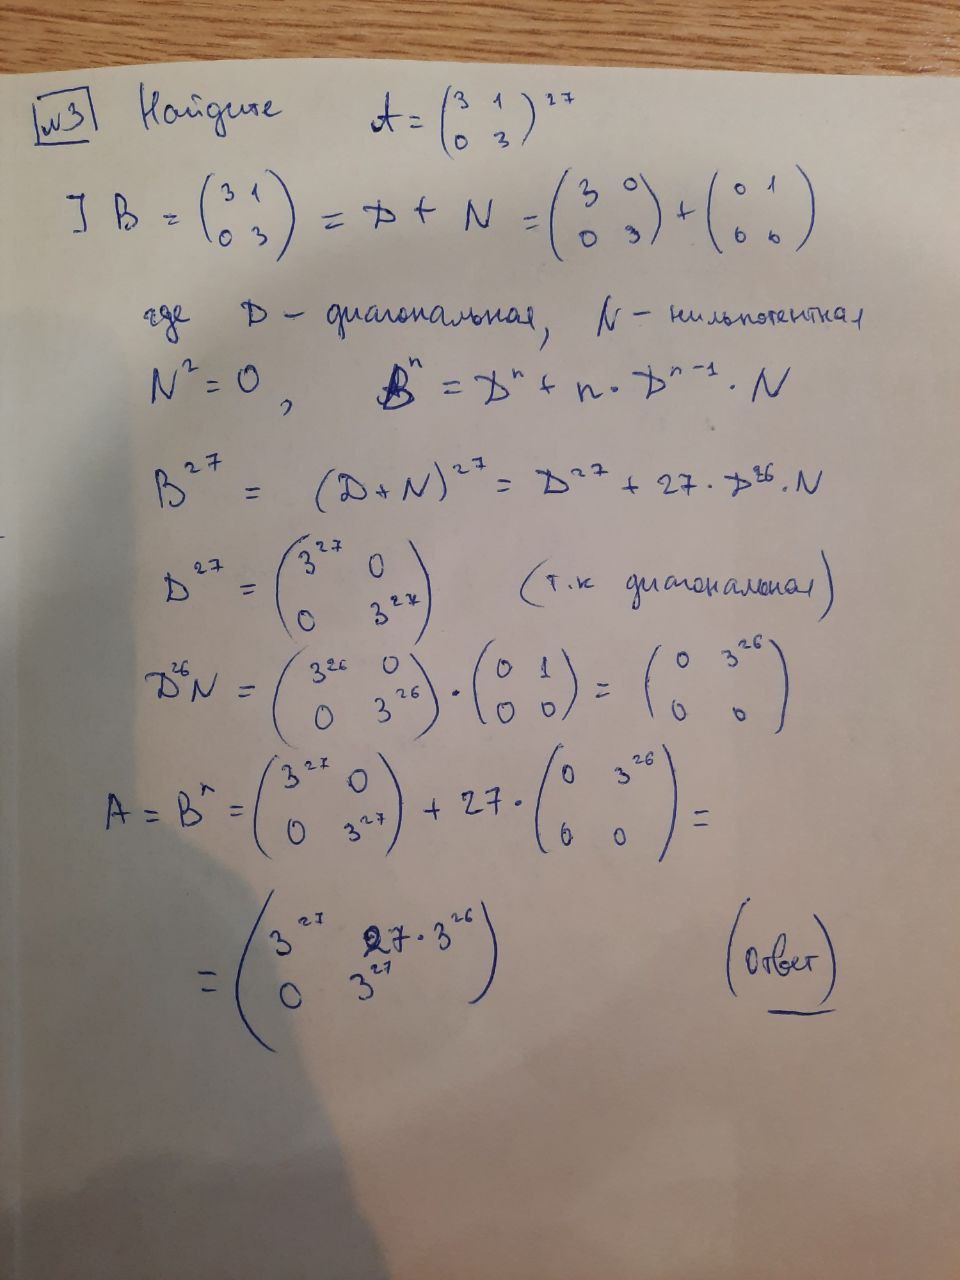 №3 Найдите A = (3 1 0 3)^27
] B = (3 1 0 3) = D + N = (3 0 0 3) + (0 1 0 0)
где D - диагональная, N - нильпотентная
N^2 = 0, B^n = D^n + n · D^n-1 · N
B^27 = (D+N)^27 = D^27 + 27 · D^26 · N
D^27 = (3^27 0 0 3^27) (т.к диагональная)
D^26 N = (3^26 0 0 3^26) · (0 1 0 0) = (0 3^26 0 0)
A = B^n = (3^27 0 0 3^27) + 27 · (0 3^26 0 0) =
= (3^27 27·3^26 0 3^27) (ответ)